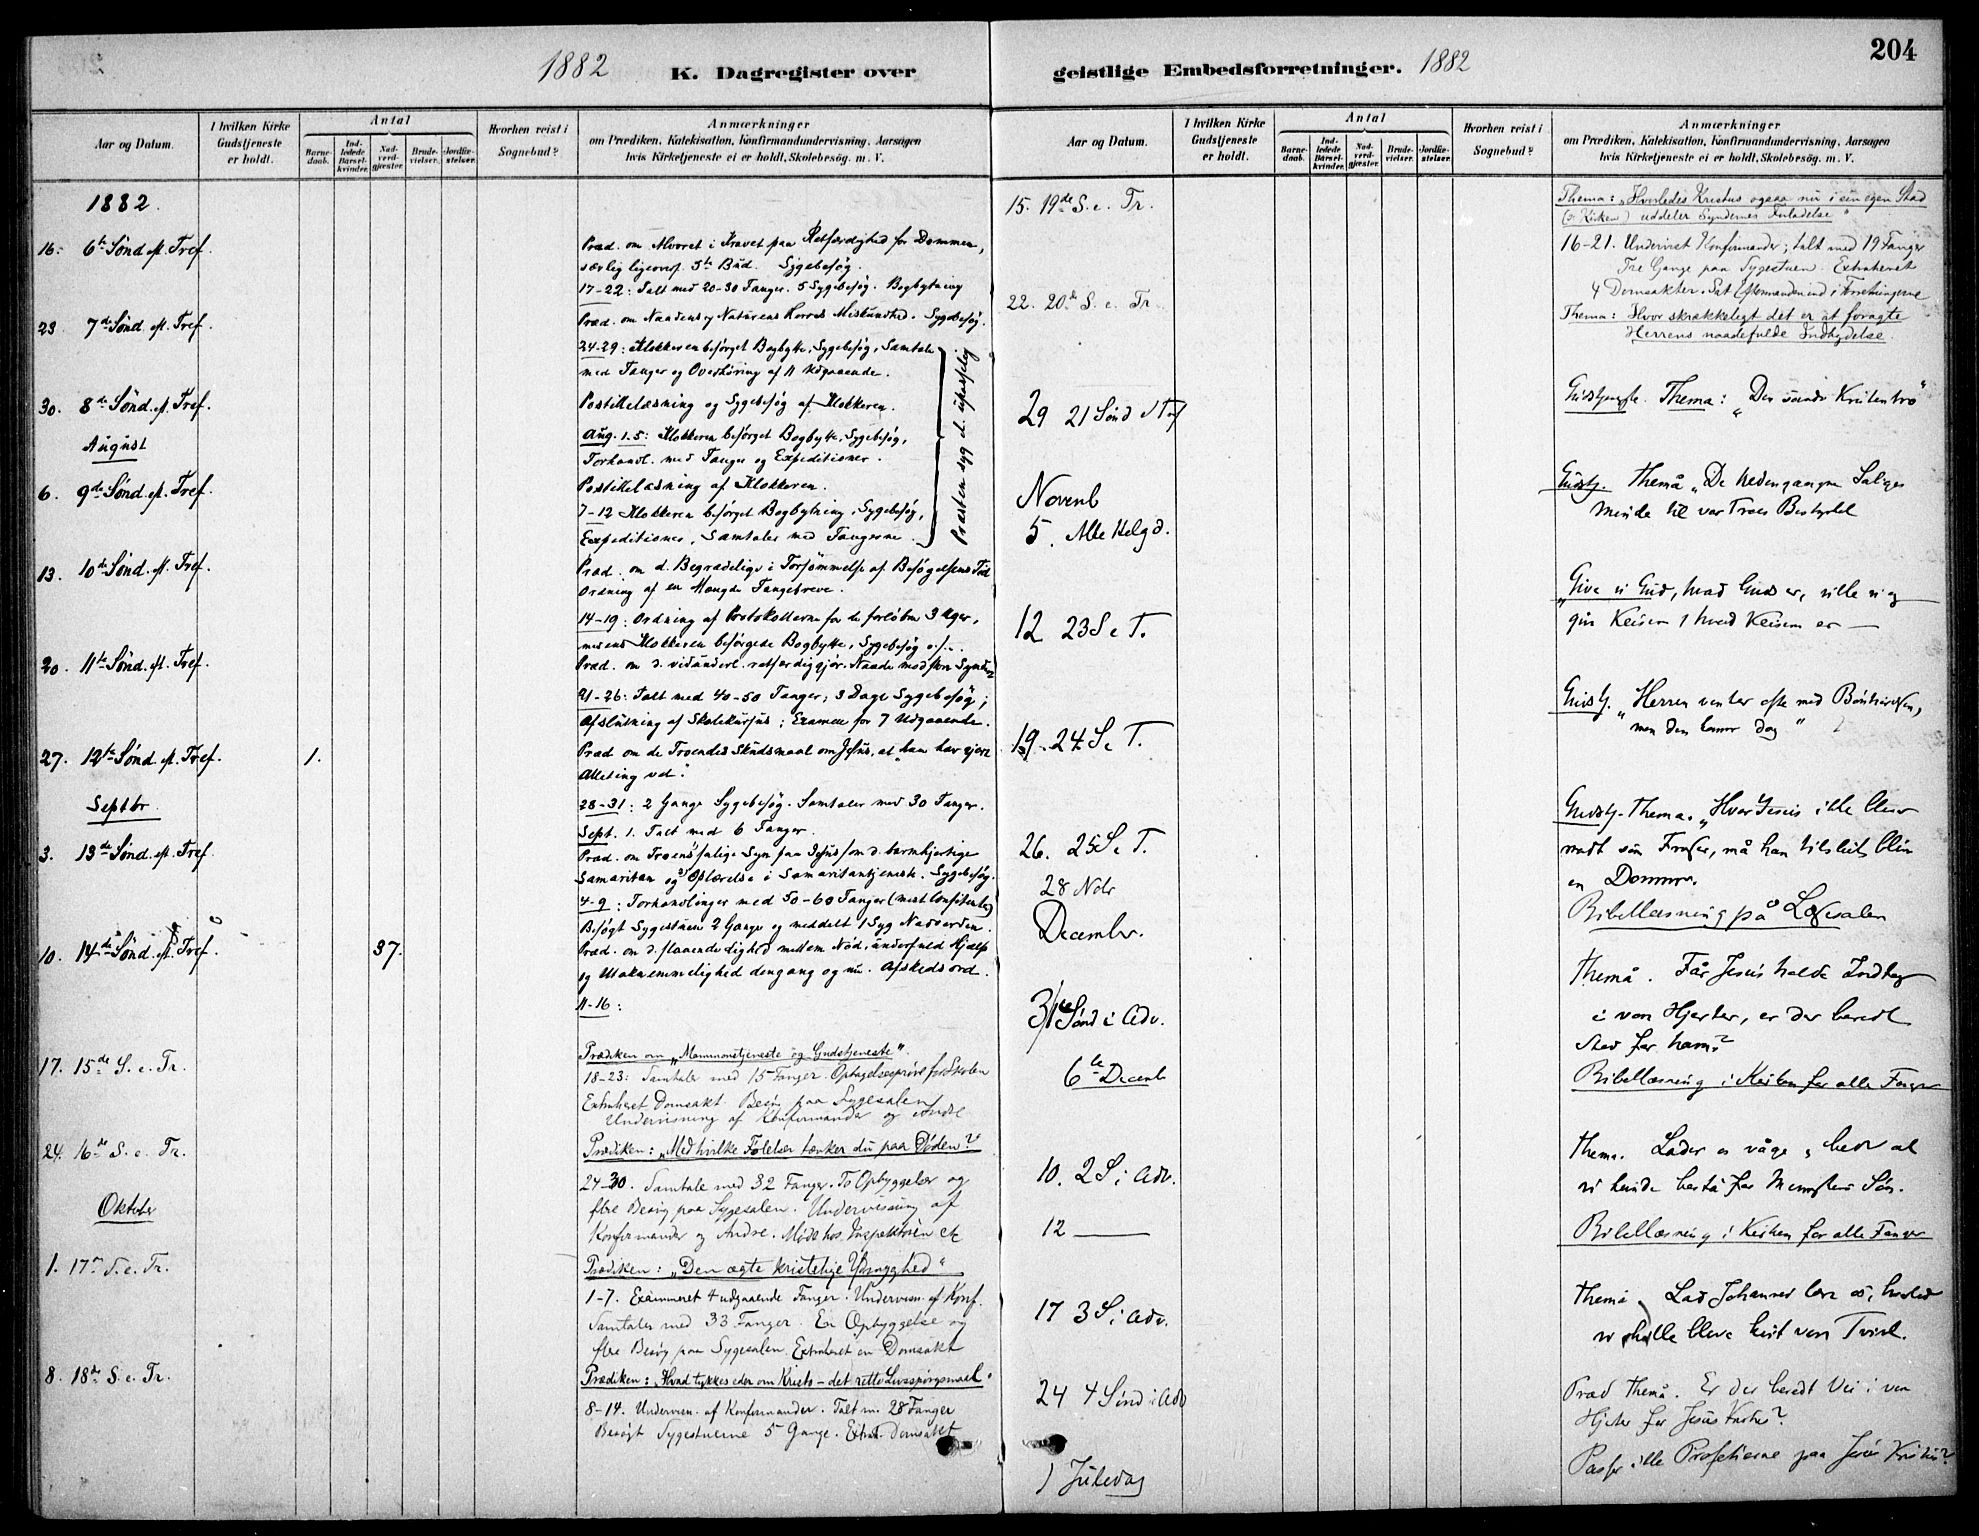 204
1882
K. Dagregister over
geistlige Embedsforretninger.
1882
Aar og Datum.
I hvilken Kirke Gudstjeneste er holdt.
Antal
Barnedaab.
Indledede Barselkvinder.
Nadverdgjester.
Brudevielser.
Jordfæstelser.
Hvorhen reist i Sognebud?
Anmærkninger
om Prædiken, Katekisation, Konfirmandundervisning, Aarsagen
hvis Kirketjeneste ei er holdt, Skolebesøg. m. V.
1882
16. 6te Sønd. ef. Tref.
Præd. om Alvoret i Kravet paa Retfærdighed for Dommen,
særlig ligeoverf. 5te Bud. Sygebesøg.
17-22: Talt med 20-30 Fanger. 5 Sygebesøg. Bogbytning
23 7de Sønd. ef. Tref.
Præd. om Naadens og Naturens Herres Miskundhed. Sygebesøg.
24-29: Klokkeren besørget Bogbytte, Sygebesøg, Samtale
med Fanger og Overhøring af 11 Udgaaende.
30. 8de Sønd. ef. Tref.
Postillelæsning og Sygebesøg af Klokkeren.
August
Aug. 1.5: Klokkeren besørget Bogbytte, Sygebesøg,
Forhandl. med Fanger og Expeditioner.
6. 9de Sønd. ef. Tref.
Postillelæsning af Klokkeren.
7-12 Klokkeren besørget Bogbytning, Sygebesøg,
Expeditioner, Samtaler med Fangerne.
Præsten syg el. upasselig
13. 10de Sønd. ef. Tref.
Præd. om d. Begrædelige i Forsømmelse af Besøgelsens Tid
Ordning af en Mængde Fangebreve.
14-19: Ordning af Protokollerne for de forløbne 3 Uger,
mens Klokkeren besørgede Bogbytte, Sygebesøg o.s.v.
20. 11te Sønd. ef. Tref.
Præd. om d. vidunderl. retfærdiggjør. Naade mod store Syndere
21-26: Talt med 40-50 Fanger; 3 Dage Sygebesøg;
Afslutning af Skolekursus; Examen for 7 Udgaaende.
27. 12te Sønd. ef. Tref. 1.
Præd om de Troendes Skudsmaal om Jesus, at "han har gjort
Alleting vel."
Septbr
28-31: 2 Gange Sygebesøg. Samtaler med 30 Fanger.
Sept. 1. Talt med 6 Fanger.
3. 13de Sønd. ef. Tref.
Præd. om Troens salige Syn paa Jesus som d. barmhjertige
Samaritan og Oplærelse i Samaritantjeneste. Sygebesøg.
4-9: Forhandlinger med 50-60 Fanger (mest Confitenter)
Besøgt Sygestuen 2 Gange og meddelt 1 Syg Nadverden.
10. 14de Sønd. ef. Tref. 37.
Præd. om d. slaaende Lighed mellem Nød, underfuld Hjælp
og Utaknemmelighed dengang og nu. Afskedsord.
11-16:
17. 15de S. e. Tr.
Prædiken om "Mammonstjeneste og Gudstjeneste".
18-23: Samtaler med 15 Fanger. Optagelsesprøve for Skolen
Extraheret Domsakt. Besøg paa Sygesalen
Undervisning af Konfirmander og Andre
24. 16de S. e. Tr.
Prædiken: "Med hvilke Følelser tænker du paa Døden?"
24-30. Samtale med 32 Fanger. To Opbyggelser og
flere Besøg paa Sygesalen. Undervisning af
Oktober
Konfirmander og Andre. Møde hos Inspektøren etc
1. 17de S. e. Tr.
Prædiken: "Den ægte kristelige Ydmyghed"
1-7. Examineret 4 udgaaende Fanger. Undervisn. af Konf.
Samtaler med 33 Fanger. En Opbyggelse og
flere Besøg paa Sygesalen. Extraheret en Domsakt
8. 18de S. e. Tr.
Prædiken: "Hvad tykkes eder om Kristo – det rette Livsspørgsmaal"
8-14. Undervisn. af Konfirmander. Talt m. 28 Fanger
Besøgt Sygestuerne 5 Gange. Extrah. Domsaktet
Aar og Datum.
I hvilken Kirke Gudstjeneste er holdt.
Antal
Barnedaab.
Indledede Barselkvinder.
Nadverdgjester.
Brudevielser.
Jordfæstelser.
Hvorhen reist i Sognebud?
Anmærkninger
om Prædiken, Katekisation, Konfirmandundervisning, Aarsagen
hvis Kirketjeneste ei er holdt, Skolebesøg. m. V.
15. 19de S. e. Tr.
Thema: "Hvorledes Kristus ogsaa nu i sin egen Stad
(o: Kirken) uddeler Syndernes Forladelse"
16-21. Undervist Konfirmander; talt med 19 Fanger
Tre Gange paa Sygestuen. Extraheret
4 Domsakter. Sat Eftermanden ind i Forretningerne
22. 20de S. e. Tr.
Thema: Hvor skrækkeligt det er at foragte
Herrens naadefulde Indbydelse.
29 21 Sønd e Tref
Gudstjeneste. Thema: "Den sande Kristentro"
Novemb
5. Alle Helgd.
Gudstj. Themå "De hedengangne Saliges
Minde til vor Troes Bestyrkel
12 23 S e T.
"Give vi Gud, hvad Guds er, ville vi og
give Keiseren hvad Keiserens er —
19. 24. S. e T.
Gudstj. "Herren venter ofte med Bønhørelsen,
men den kommer dog"
26. 25 S. e T.
Gudstj. Thema. "Hvor Jesus ikke bliver
modt som Frelser, må han tilsidst blive
en Dommer.
28 Nobr
Bibellæsning på Læsesalen
December.
3/ 1ste Sønd i Adv.
Themå. Får Jesus holde Indtog
i vore Hjerter, er der beredt
Sted for ham?
6te Decemb
Bibellæsning i Kirken for alle Fanger
10. 2 S. i Adv.
Thema. Lader os våge, bede at
vi kunde bestå for Menneskens Søn.
12 —
Bibellæsning i Kirken for alle Fanger
17 3 S. i Adv.
Themå. Lad Johannes lære os, hvorled
vi skulle bleve kvit vor Tvivl.
24 4 Sønd i Adv
Præd Themå. Er der beredt Vei i vore
Hjerter for Jesus Kristus?
1 Juledag
Passer alle Profetierne paa Jesus Kristus?